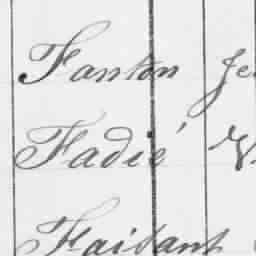 Fanton Je
Fadié V
Faisant